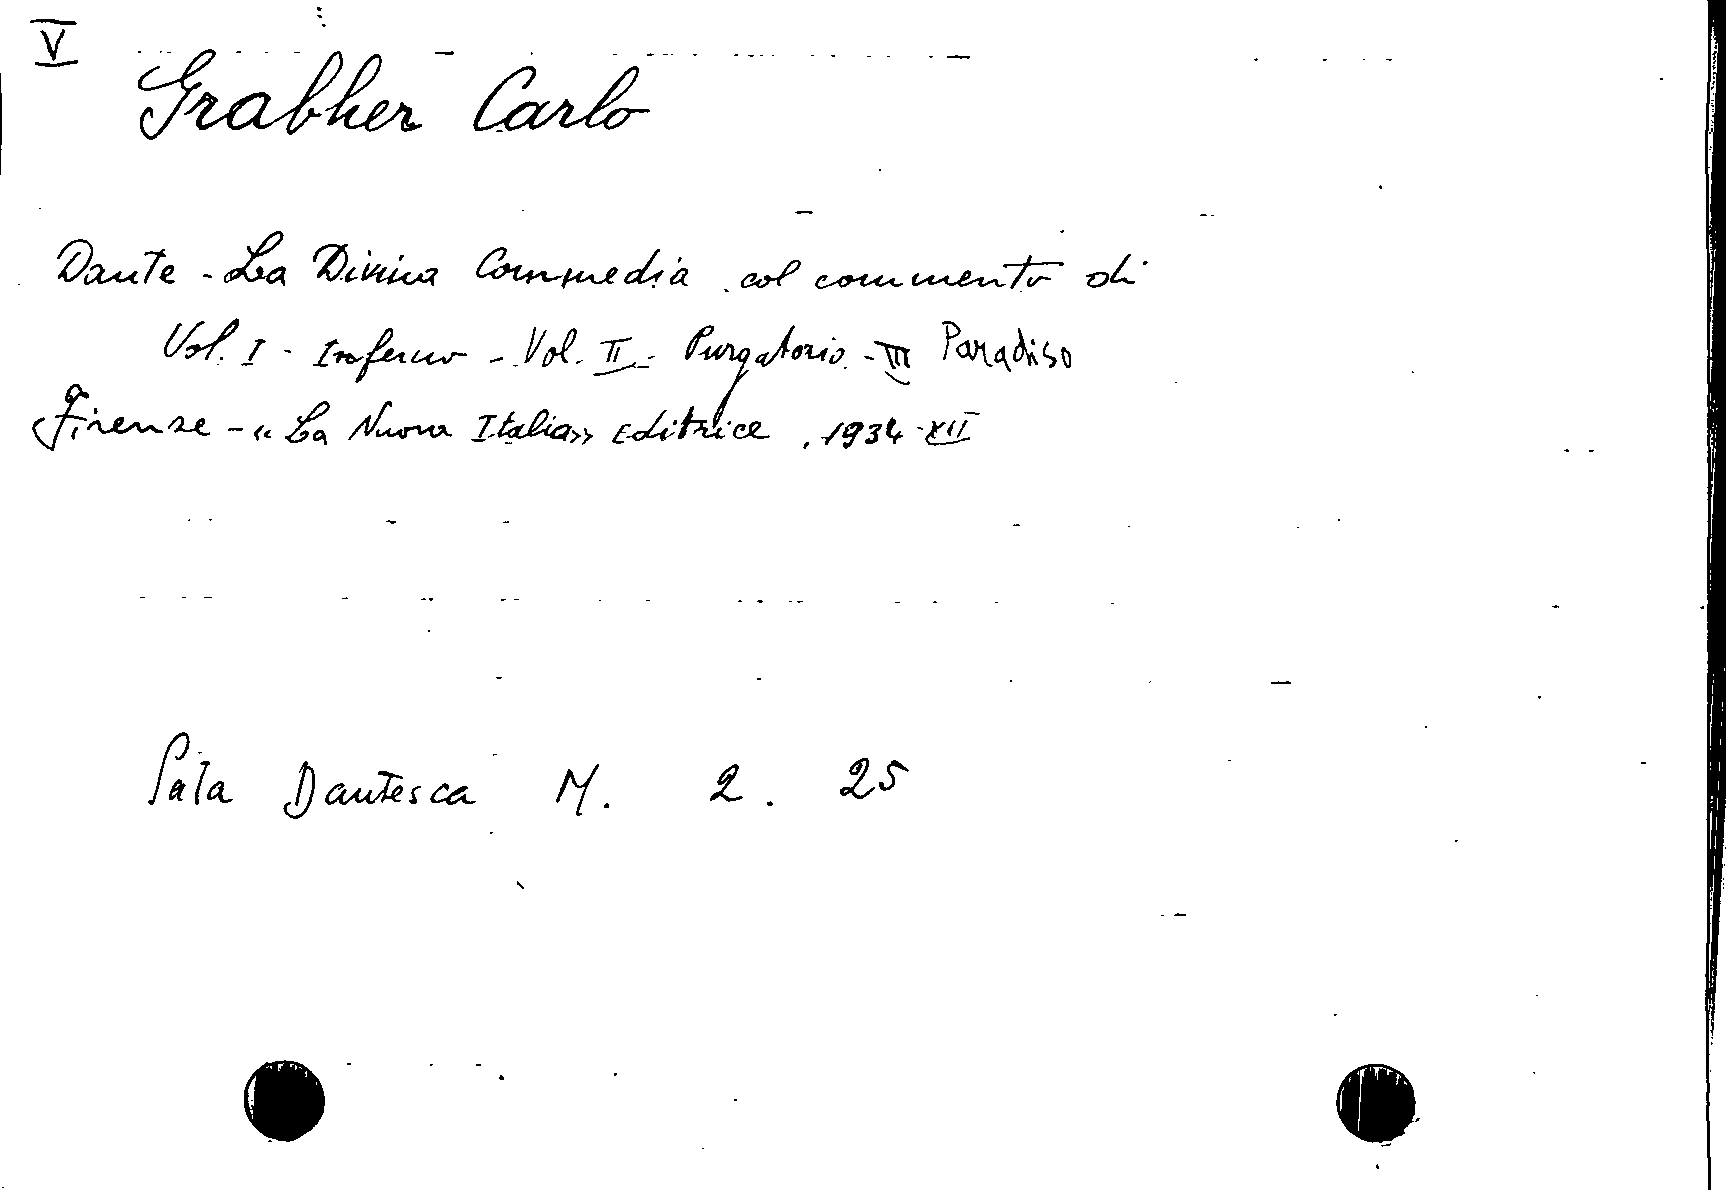 V
Grabher Carlo
Dante - La Divina Commedia col commento di
Vol. I - Inferno - Vol. II - Purgatorio - III Paradiso
Firenze - « La Nuova Italia» Editrice, 1934-XII
Sala Dantesca M. 2. 25